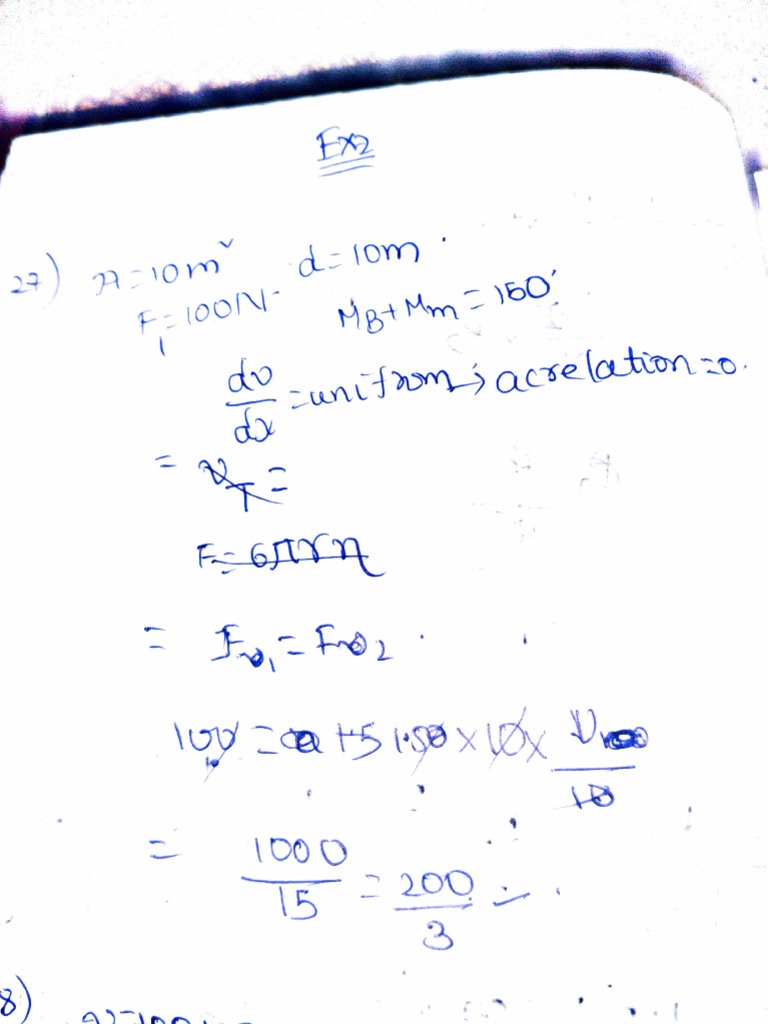 Ex2
27) A=10m² d=10m
F₁=100N M_B+M_m=150
dv/dx = uniform; acrelation=0.
=
F=6πrη
= F_v₁ = F_v₂
100 = 1.50 × 10 × V/10
= 1000/15 = 200/3
8)